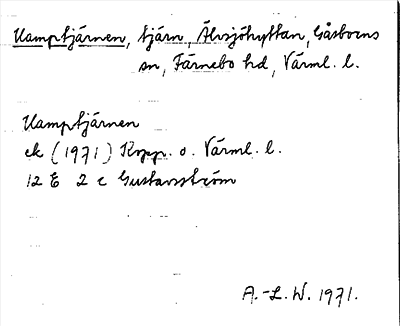 Kamptjärnen, tjärn, Älvsjöhyttan, Gåsborns
sn, Färnebo hd, Värml. l.
Kamptjärnen
ek (1971) Kopp. o. Värml. l.
12 E 2 c Gustavsström
A.-L. W. 1971.